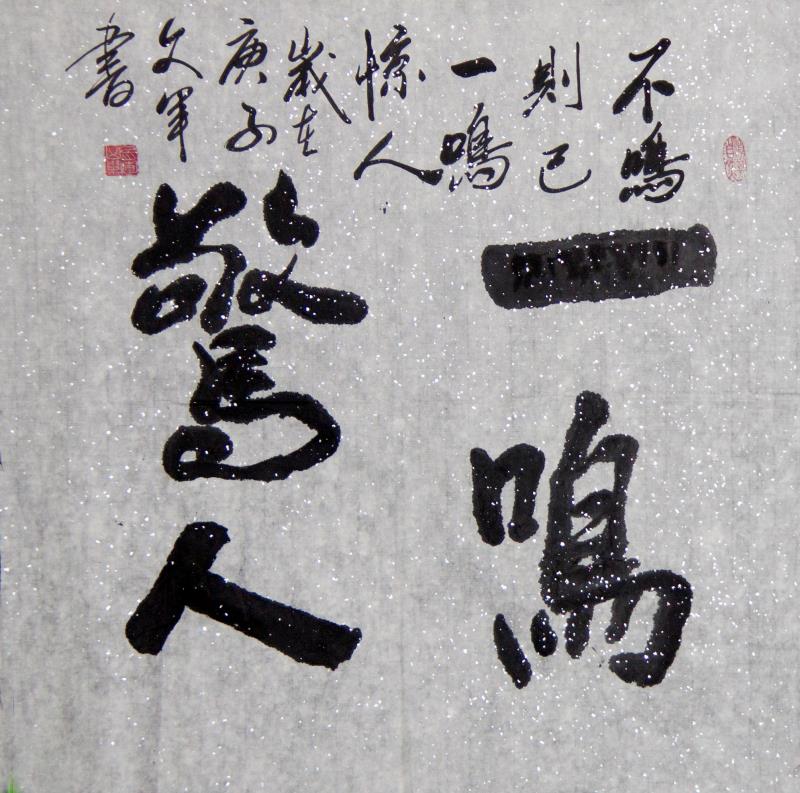 一鳴
驚人
不鳴
則已
一鳴
惊人
歲在
庚子
文軍
書